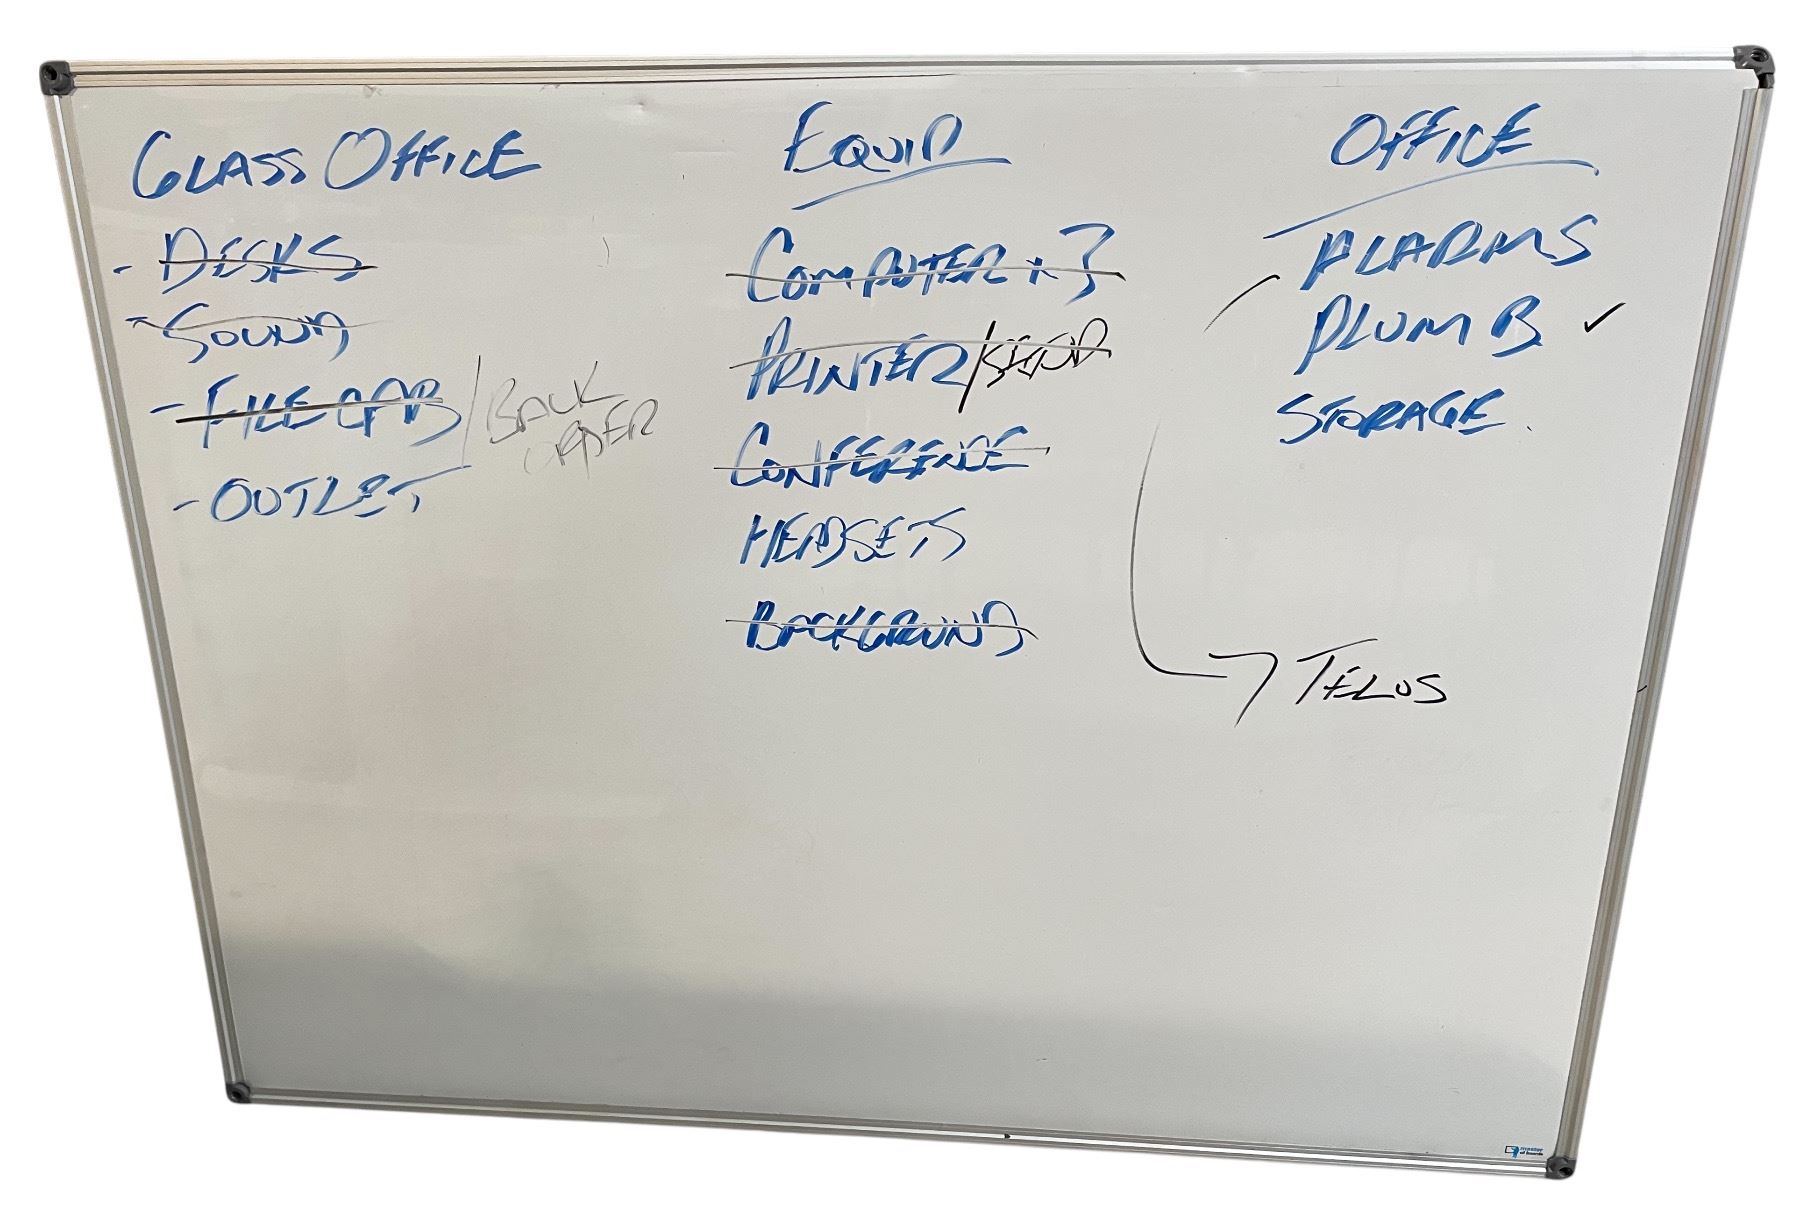 GLASS OFFICE
- DESKS
- SOUND
- FILE CAB / BACK
ORDER
- OUTLET
EQUIP
COMPUTER x 3
PRINTER/SHOP
CONFERENCE
HEADSETS
BACKGROUND
OFFICE
ALARMS
PLUMB ✓
STORAGE.
→ TELUS